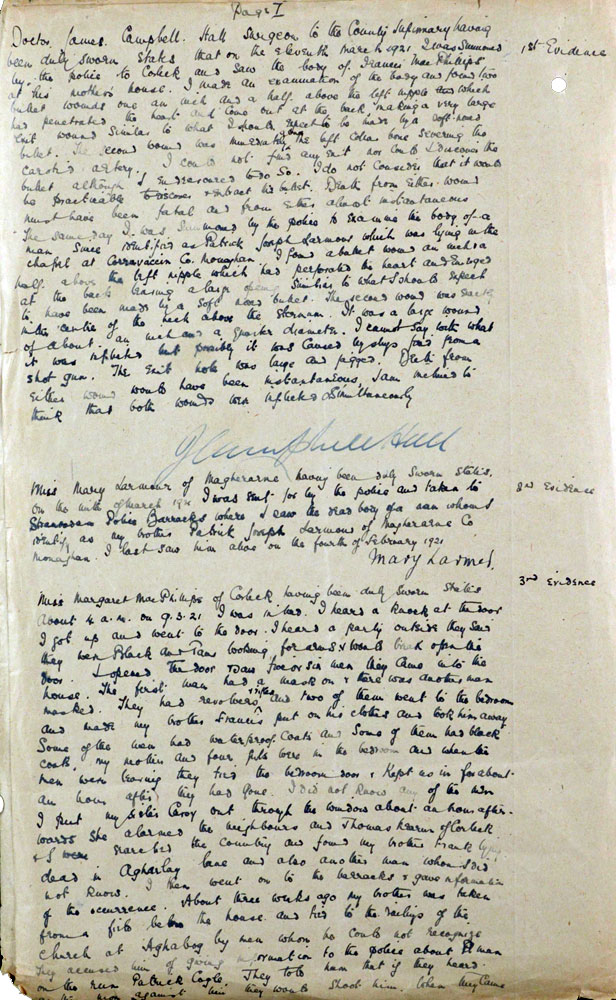 Page I
Doctor James Campbell Hall Surgeon to the County Infirmary having
been duly sworn states that on the eleventh March 1921 I was summoned
by the police to Corleck and saw the body of Francis MacPhillips
at his mother's house. I made an examination of the body and found two
bullet wounds one an inch and a half above the left nipple which
had penetrated the heart and come out at the back making a very large
exit wound similar to what I should expect to be made by a soft nosed
bullet. The second wound was immediately above the left collar bone severing the
carotid artery. I could not find any exit nor could I discover the
bullet although I endeavoured to do so. I do not consider that it would
be practicable to discover & extract this bullet. Death from either wound
must have been fatal and from either almost instantaneous
The same day I was summoned by the police to examine the body of a
man since identified as Patrick Joseph Larmour which was lying in the
chapel at Corravaccin Co. Monaghan. I found a bullet wound an inch & a
half above the left nipple which had perforated the heart and emerged
at the back leaving a large opening similar to what I should expect
to have been made by a soft nosed bullet. The second wound was exactly
in the centre of the neck above the sternum. It was a large wound
of about an inch and a quarter diameter. I cannot say with what
it was inflicted but possibly it was caused by slugs fired from a
shot gun. The exit hole was large and jagged. Death from
either wound would have been instantaneous, I am inclined to
think that both wounds were inflicted simultaneously
J Campbell Hall
Miss Mary Larmour of Magherarne having been duly sworn states.
on the ninth of March 1921 I was sent for by the police and taken to
Stranooden Police Barracks where I saw the dead body of a man whom I
identify as my brother Patrick Joseph Larmour of Magherarne Co
Monaghan. I last saw him alive on the fourth of February 1921
Mary Larmer.
Miss Margaret MacPhillips of Corleck having been duly sworn states
About 4 a.m. on 9.3.21 I was in bed. I heard a knock at the door
I got up and went to the door. I heard a party outside they said
they were Black and Tans looking for arms & would break open the
door. I opened the door & saw five or six men they came into the
house. The first man had a mask on & there was another man
masked. They had revolvers & rifles and two of them went to the bedroom
and made my brother Francis put on his clothes and took him away
Some of the men had waterproof coats and some of them had black
coats. my mother and four girls were in the bedroom and when the
men were leaving they tied the bedroom door & kept us in for about
an hour after they had gone. I did not know any of the men
I put my sister out through the window about an hour after-
wards she alarmed the neighbours and Thomas Kearns of Corleck
& I searched the country and found my brother Frank lying
dead in Agharlay lane and also another man whom I did
not know. I then went on to the barracks & gave information
of the occurrence. About three weeks ago my brother was taken
from a field below the house and tied to the railings of the
church at Aghabog by men whom he could not recognize
They accused him of giving information to the police about a man
on the run Patrick. They told him that if they heard
against him they would shoot him. When they came
1st Evidence
2nd Evidence
3rd Evidence